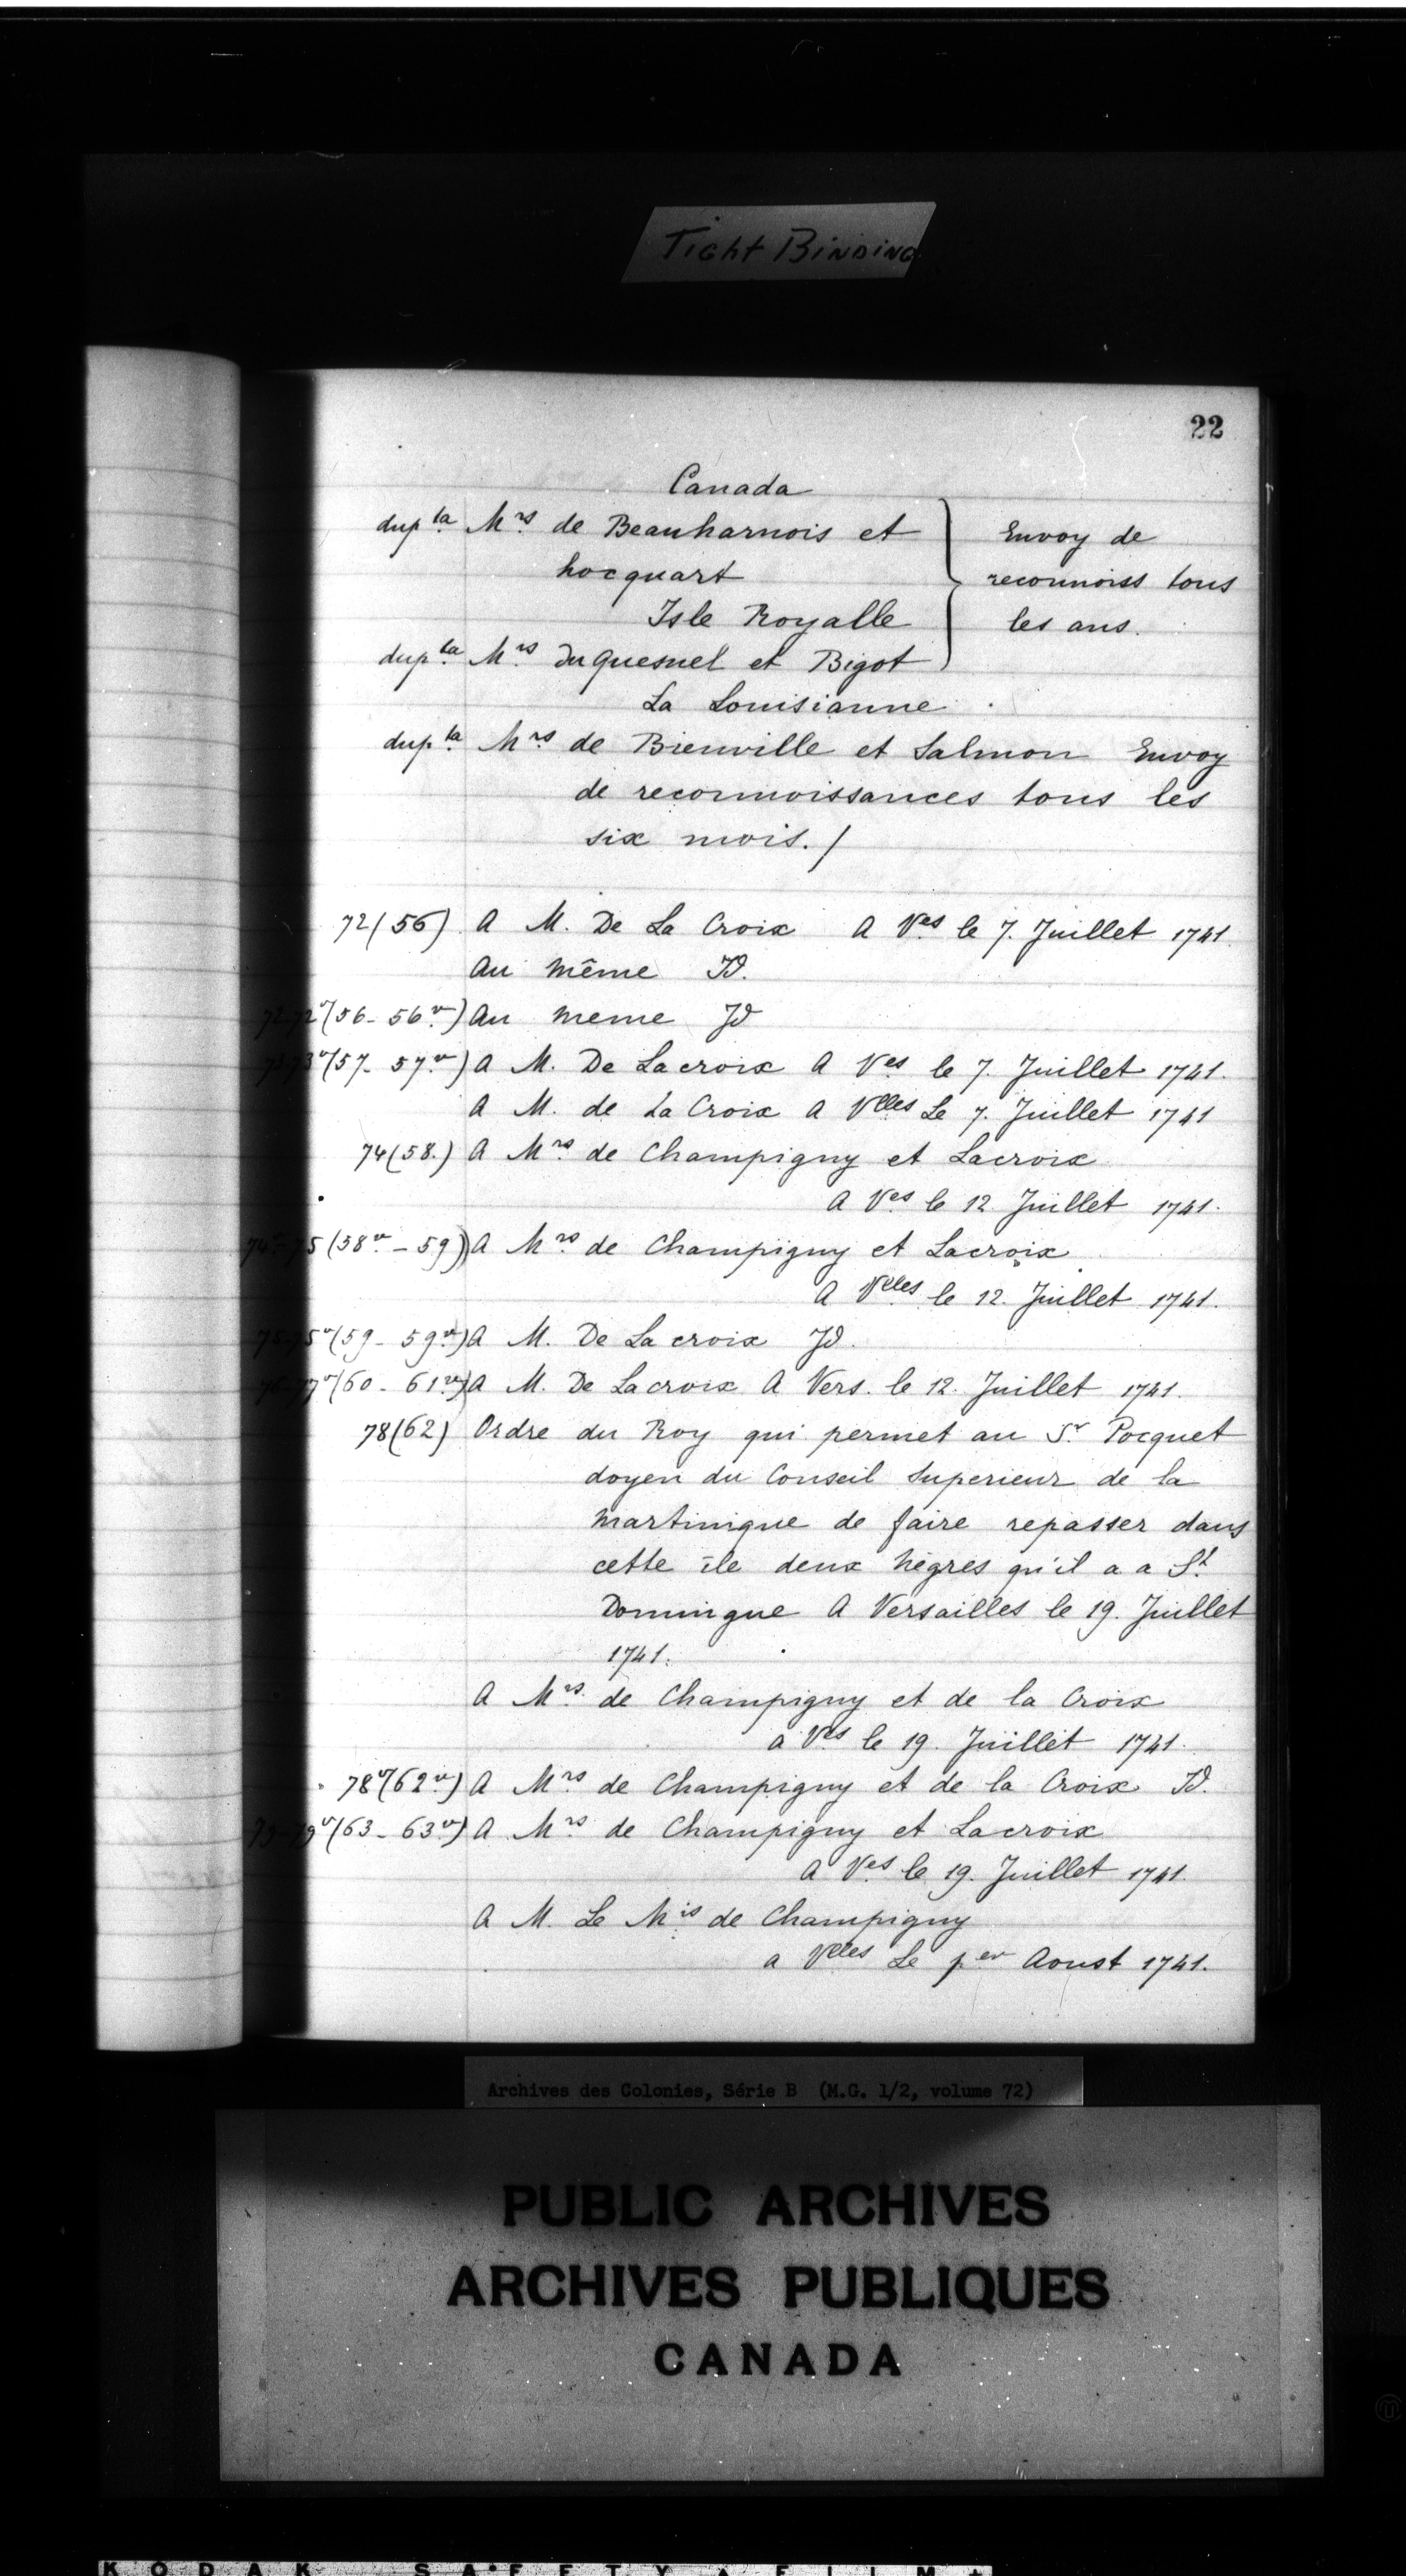 Tight Binding
22
Canada
dup.ta Mrs. de Beauharnois et
hocquart
Isle Royalle
dup.ta Mrs. duquesnel et Bigot
Envoy de
reconnoiss tous
les ans.
La Louisianne
dup.ta Mrs. de Bienville et Salmon Envoy
de reconnoissances tous les
six mois./
72(56) A M. De La Croix A Ves. le 7. Juillet 1741
Au même Id.
72-72v(56-56v.) Au meme Id
73-73v(57-57v) A M. De Lacroix A Ves. le 7. Juillet 1741.
A M. de La Croix A Vlles Le 7. Juillet 1741
74(58.) A Mrs. de Champigny et Lacroix
A Ves. le 12 Juillet 1741.
74v-75(58v.-59) A Mrs. de Champigny et Lacroix
A Vlles. le 12. Juillet 1741.
75-75v(59-59v.) A M. De La croix Id.
76-77v(60-61v.) A M. De Lacroix A Vers. le 12. Juillet 1741.
78(62) Ordre du Roy qui permet au Sr. Pocquet
doyen du Conseil Superieur de la
Martinique de faire repasser dans
cette île deux Nègres qu'il a a St.
Domingue A Versailles le 19. Juillet
1741.
A Mrs. de Champigny et de la Croix
a Ves le 19. Juillet 1741.
78v(62v) A Mrs. de Champigny et de la Croix Id.
79-79v(63-63v) A Mrs. de Champigny et Lacroix
A Ves. le 19. Juillet 1741.
A M. Le Mis. de Champigny
a Vlles Le per Aoust 1741.
Archives des Colonies, Série B (M.G. 1/2, volume 72)
PUBLIC ARCHIVES
ARCHIVES PUBLIQUES
CANADA
KODAK SAFETY FILM